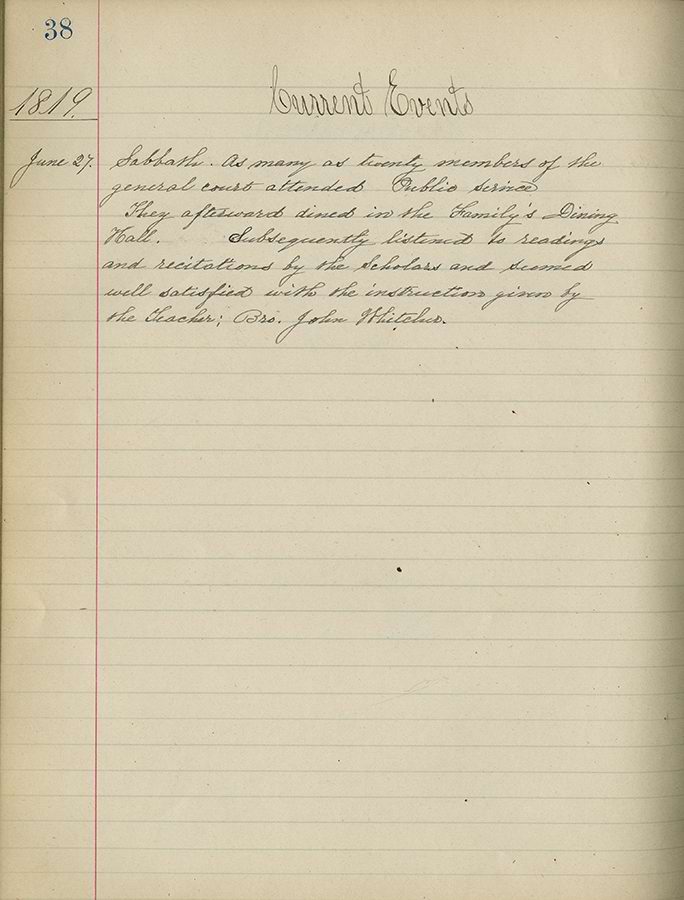 38
1819.
Current Events
June 27. Sabbath. As many as twenty members of the
general court attended Public service
They afterward dined in the Family's Dining
Hall. Subsequently listened to readings
and recitations by the Scholars and seemed
well satisfied with the instruction given by
the Teacher; Bro. John Whitcher.